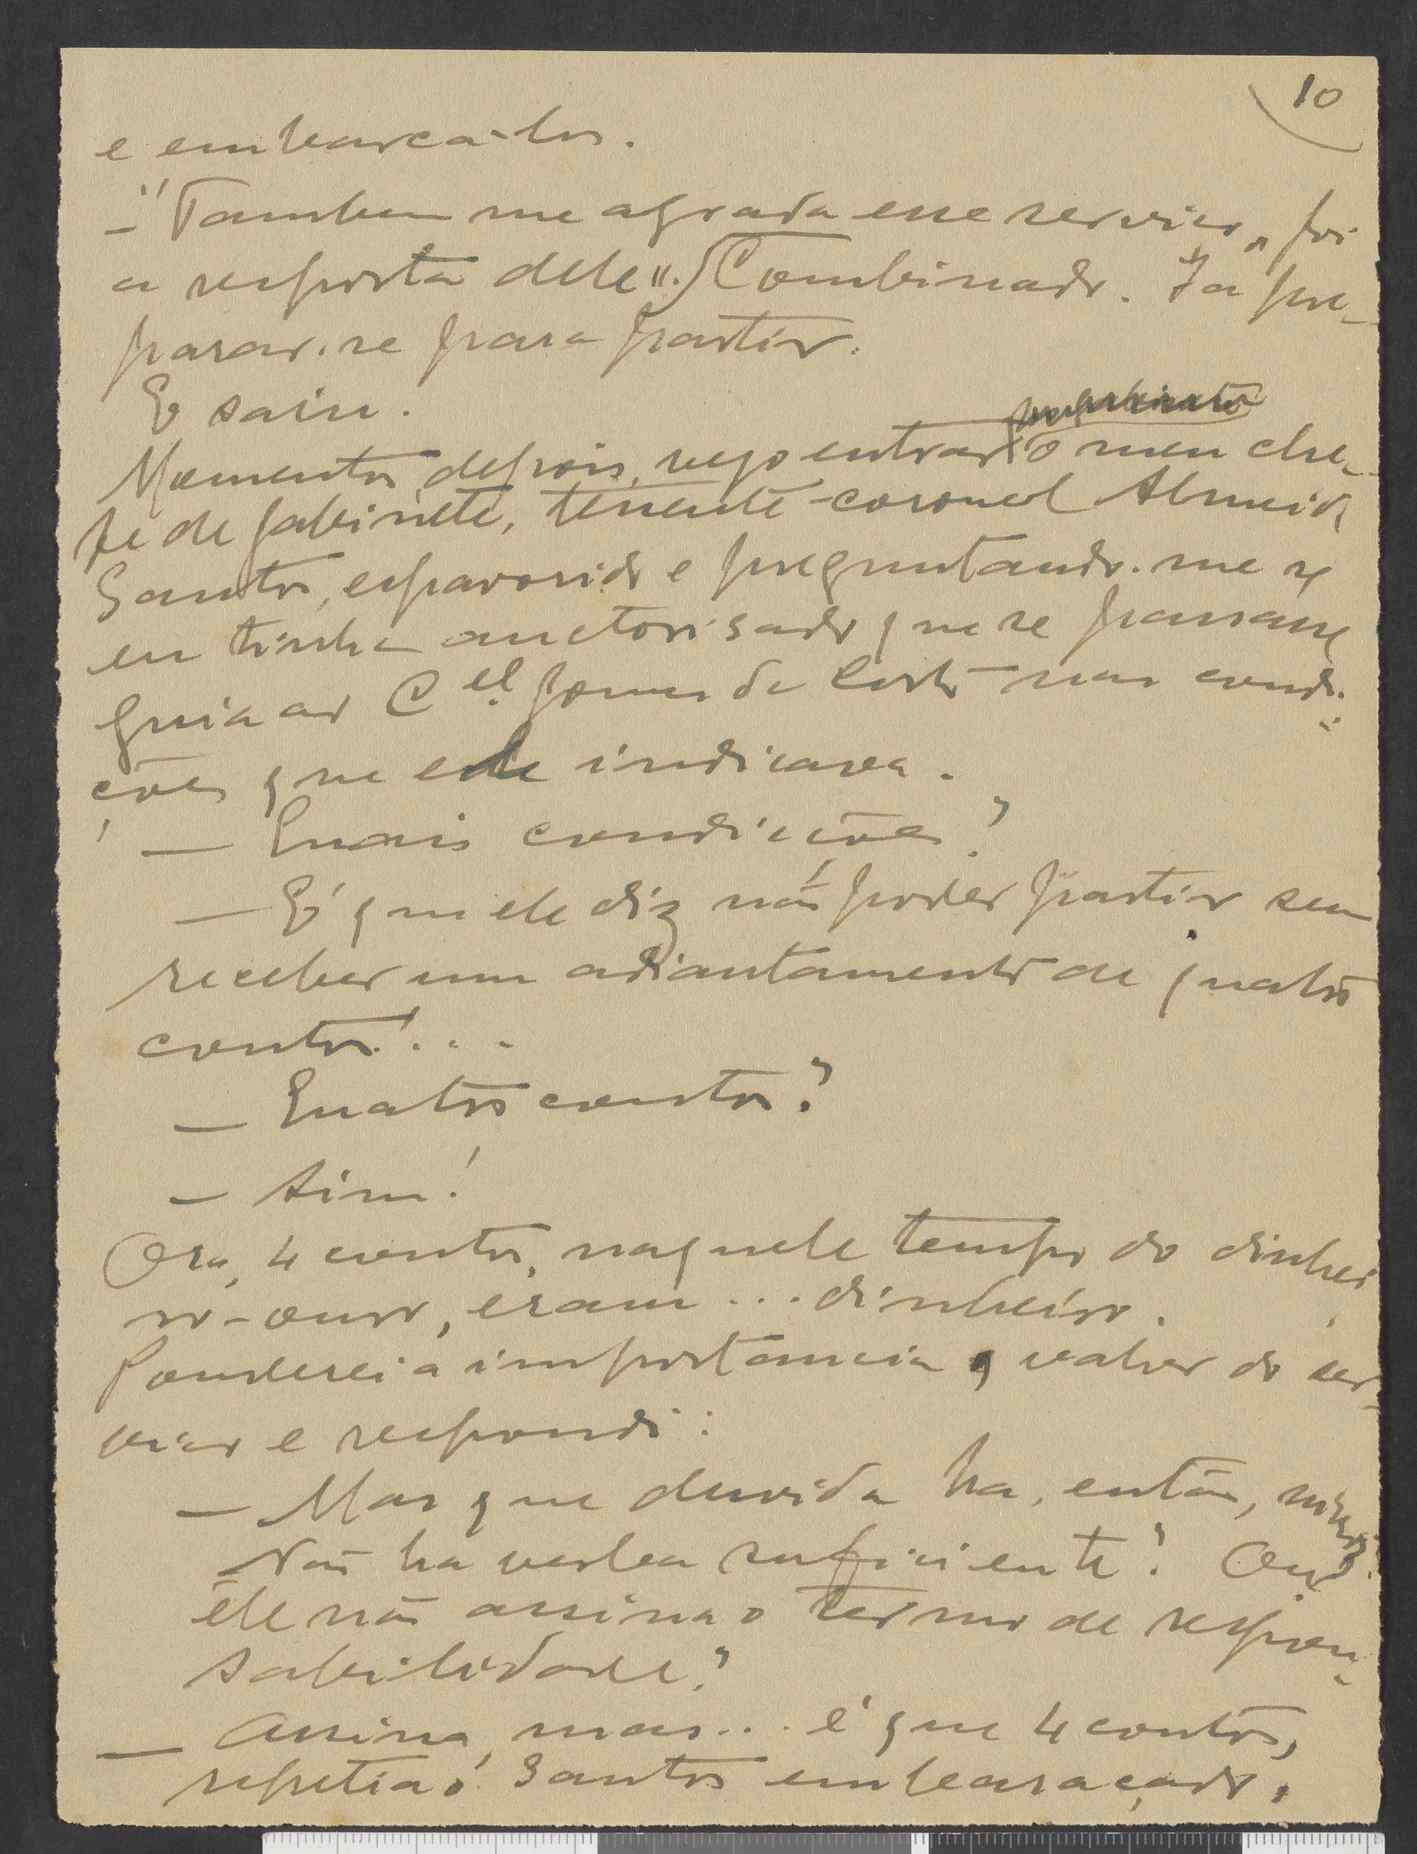 10
e embarca-los.
— "Tambem me agrada esse serviço", foi
a resposta dele". Combinado. Ia pre-
parar-se para partir.
E saiu.
Momentos depois, vejo entrar o meu che-
fe de gabinete, tenente-coronel Almeida
Santos, espavorido e preguntando-me se
eu tinha auctorisado que se passasse
guia ao Cel. Gomes da Costa nas condi-
ções que ele indicava.
— Quais condições?
— E' que ele diz não poder partir sem
receber um adiantamento de quatro
contos!...
— Quatro contos?
— Sim!
Ora, 4 contos, naquele tempo do dinhei
ro-ouro, eram... dinheiro.
Ponderei a importancia e valor do ser-
viço e respondi:
— Mas que duvida ha, então, nisso?
Não ha verba suficiente? Ou
êle não assina o termo de respon-
sabilidade?
— Assina, mas... é que 4 contos,
repetia o Santos embaraçado.